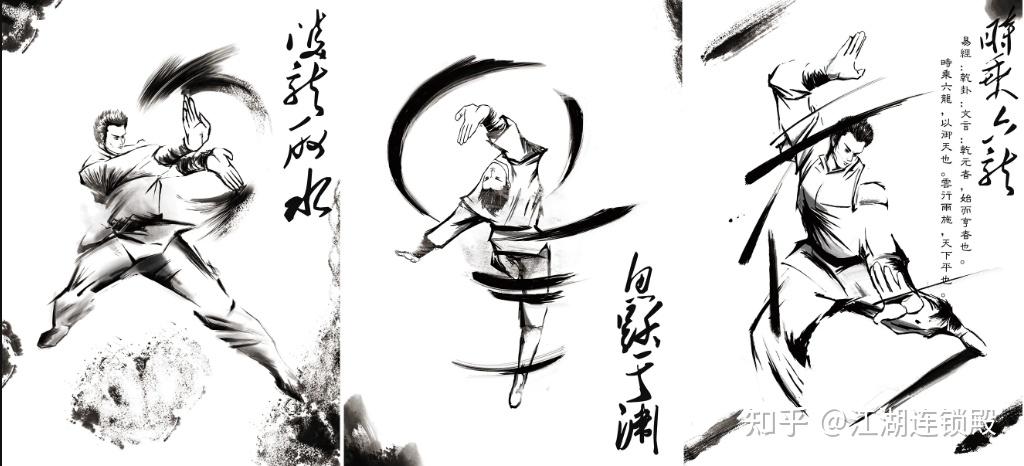 龍取水
魚躍于淵
時乘六龍
易經:乾卦:文言:乾元者,始而亨者也。
時乘六龍,以御天也。雲行雨施,天下平也。
知乎 @江湖连锁殿